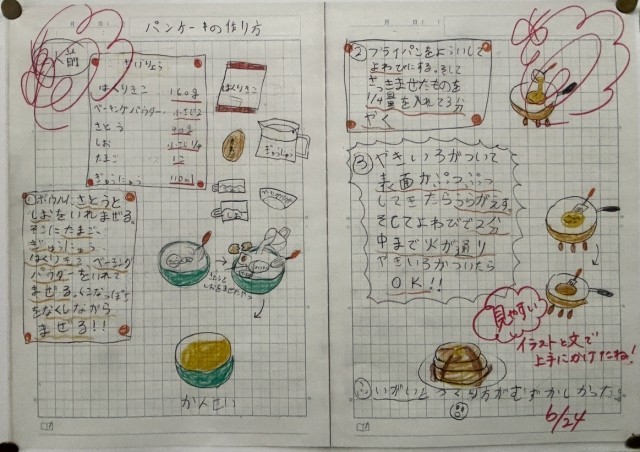 パンケーキの作り方
人前
ざいりょう
はくりきこ 160g
ベーキングパウダー 小さじ2
さとう
しお
たまご
ぎゅうにゅう 110ml
はくりきこ
ぎゅうにゅう
しお
①ボウルにさとうと
しおをいれまぜる。
そこにたまご、
ぎゅうにゅう、
はくりきこ、ベーキング
パウダーをいれて
まぜる。
をなくしながら
まぜる!!
かんせい
②フライパンをよういして
よわびにする。そして
さっきまぜたものを
1/4量を入れて3分
やく
③やきいろがついて
表面がぷつぷつ
してきたらうらがえす。
そしてよわびで2分
中まで火が通り
やきいろがついたら
OK!!
見やすい!
イラストと文で
上手にかけたね!
いがいとつくり方がむずかしかった。
6/24